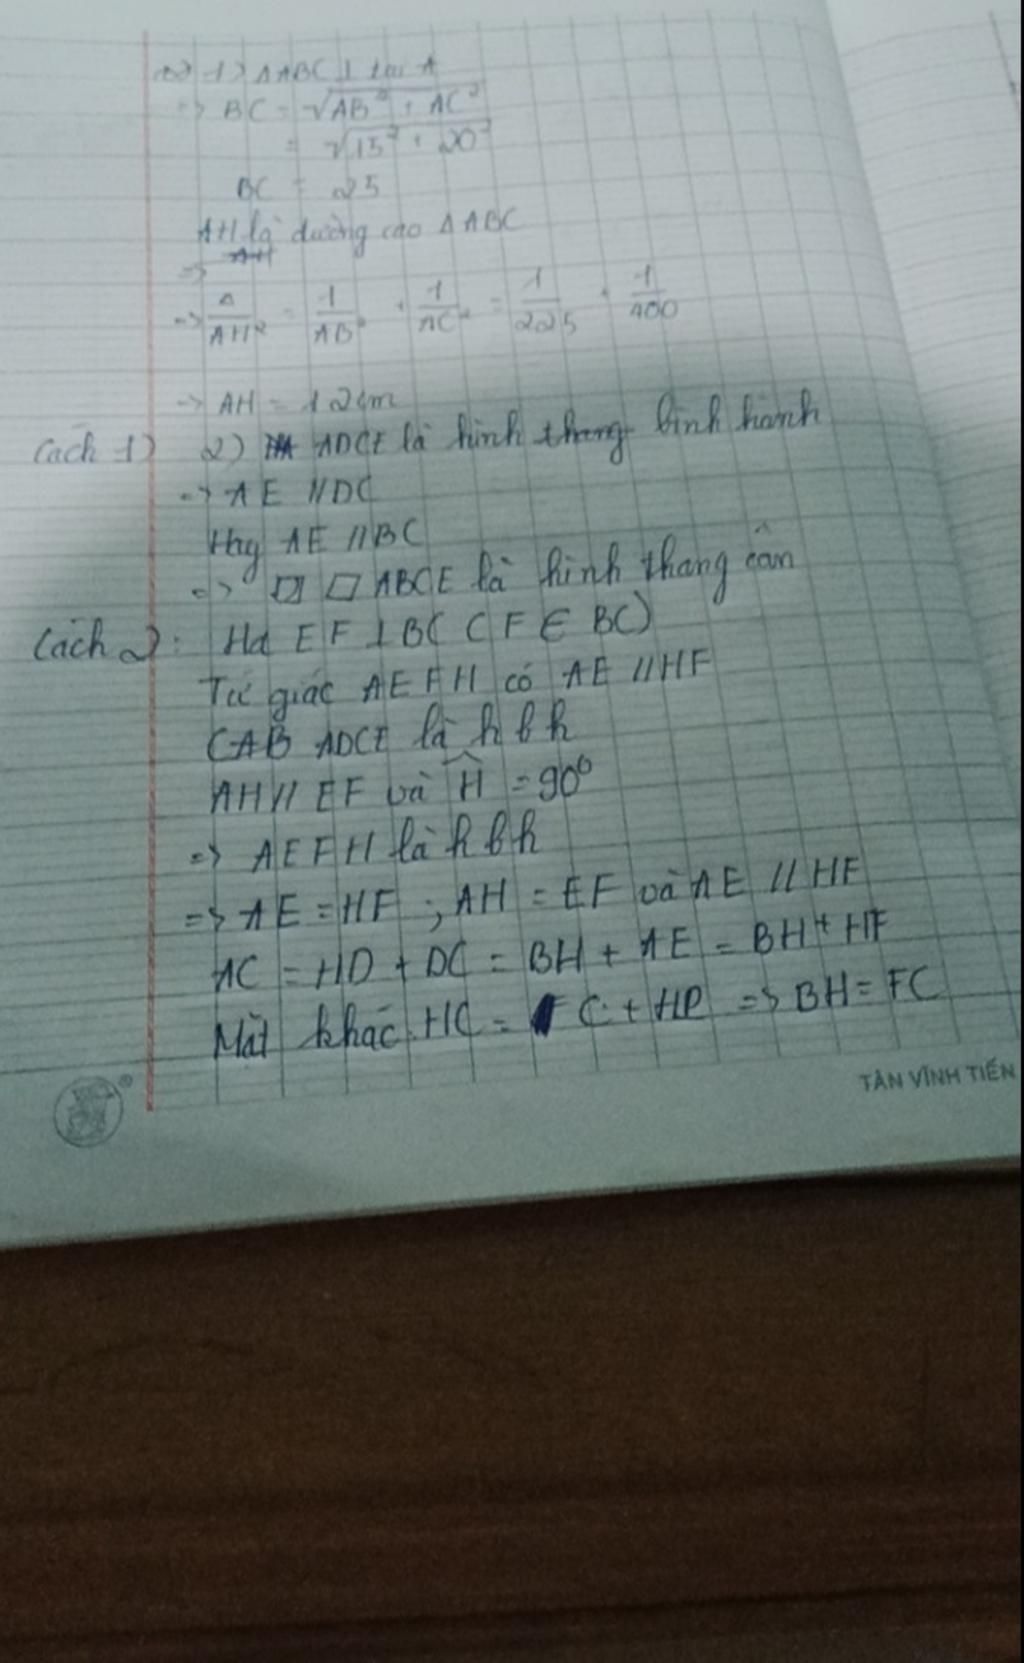 1) ΔABC ⊥ tại A
=> BC = √AB² + AC²
= √15² + 20²
BC = 25
AH là đường cao ΔABC
=>
=> 1/AH² = 1/AB² + 1/AC² = 1/225 + 1/400
-> AH = 12cm
Cách 1) 2) ADCE là hình thang bình hành
=> AE // DC
Hay AE // BC
=> □ ABCE là hình thang cân
Cách 2: Hạ EF ⊥ BC ( F ∈ BC)
Tứ giác AEFH có AE // HF
CAB ADCE là hbh
AH // EF và Ĥ = 90⁰
=> AEFH là hbh
=> AE = HF ; AH = EF và AE // HF
AC = HD + DC = BH + AE = BH + HF
Mặt khác HC = FC + HP => BH = FC
TÂN VĨNH TIẾN